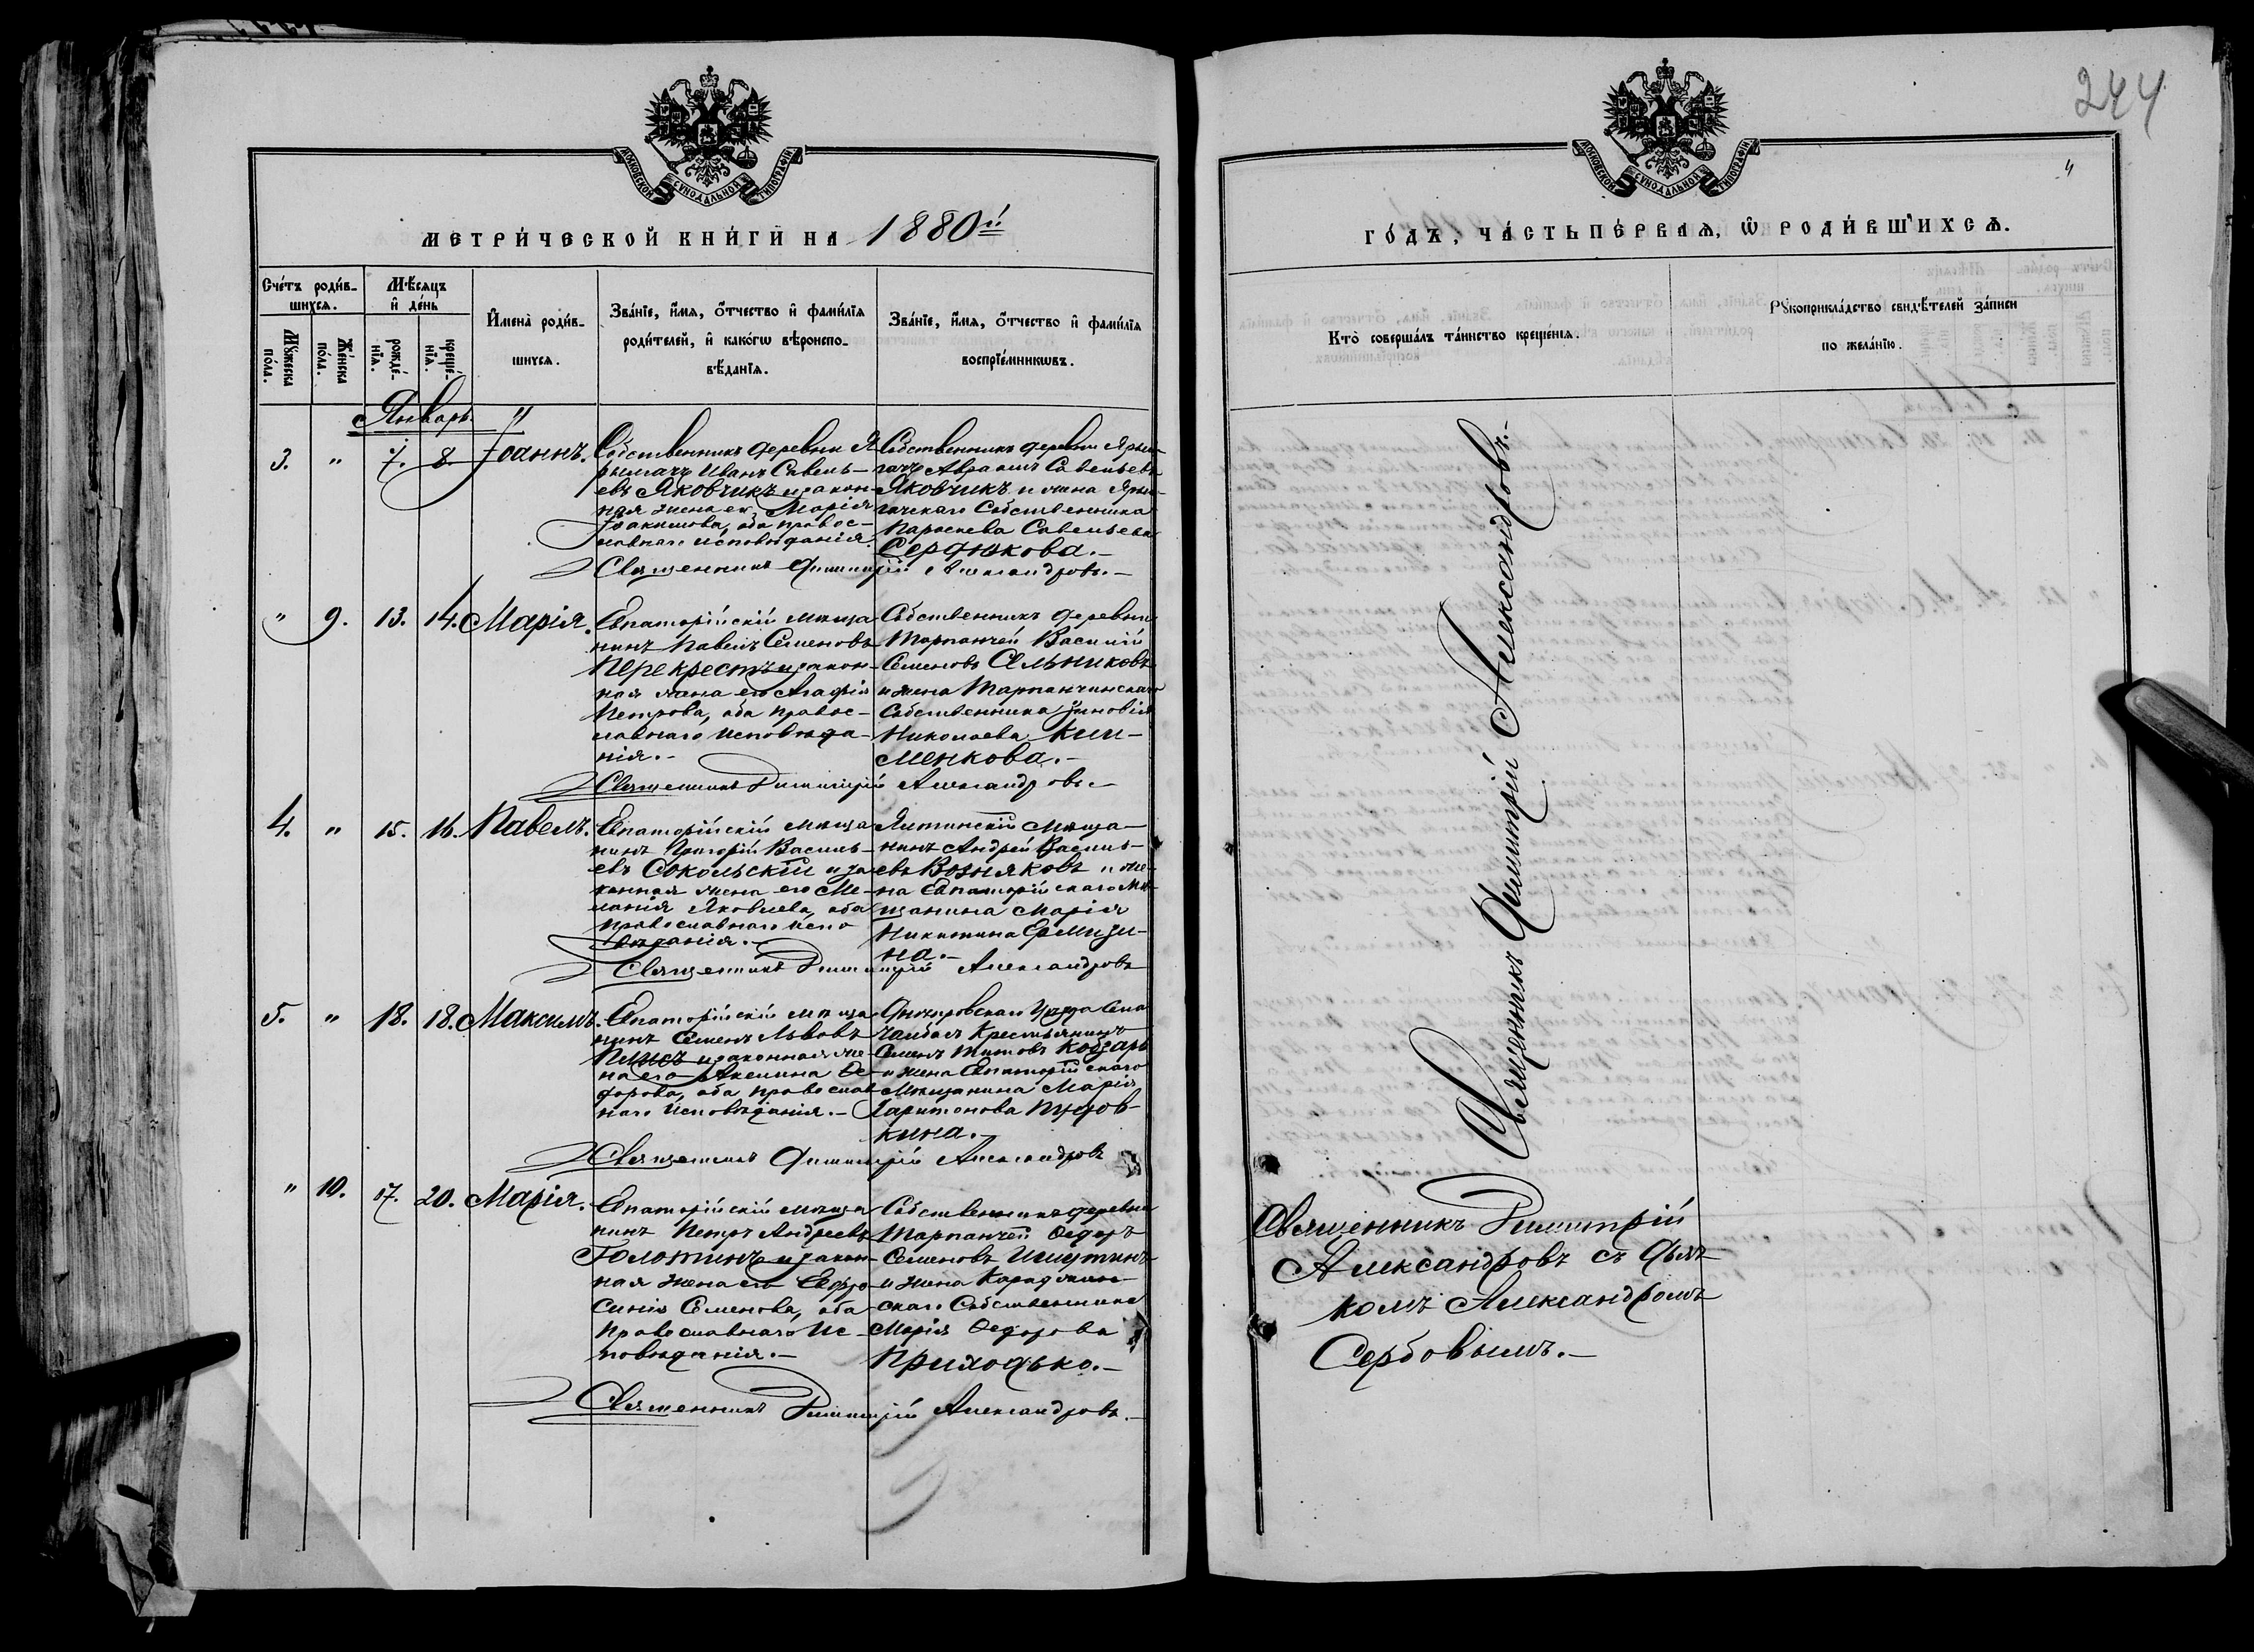 244
МОСКОВСКОЙ СѴНОДАЛЬНОЙ ТИПОГРАФІИ
МОСКОВСКОЙ СѴНОДАЛЬНОЙ ТИПОГРАФІИ
МЕТРИ́ЧЕСКОЙ КНИ́ГИ НА 1880й
ГО́ДЪ, ЧА́СТЬ ПЕ́РВАѦ, Ѿ РОДИ́ВШИХСѦ.
Сче́тъ роди́в-
шихсѧ.
Мѣ́сяцъ
и де́нь
Имена̀ роди́в-
шихсѧ.
Зва́нїе, и́мѧ, ѻ҆́тчество и фами́лїѧ
роди́телей, и како́гѡ вѣроиспо-
вѣ́данїѧ.
Зва́нїе, и́мѧ, ѻ҆́тчество и фами́лїѧ
воспрїе́мникѡвъ.
Мꙋ́жеска
по́ла.
Же́нска
по́ла.
рожде́-
нїѧ.
креще́-
нїѧ.
Кто̀ соверша́лъ та́инство креще́нїѧ.
Рꙋкоприкла́дство свидѣ́телей за́писи
по жела́нїю.
Январь "
3. " 7. 8. Іоаннъ.
Собственникъ деревни Я-
рылгачъ Иванъ Савель-
евъ Яковчикъ и закон-
ная жена его Марія
Іоакимова, оба правос-
лавнаго исповѣданія.
Собственникъ деревни Ярыл-
гачъ Авраамъ Савельевъ
Яковчикъ и жена Ярыл-
гачскаго Собственника
Параскева Савельева
Сердюкова.-
Священникъ Димитрій Александровъ.-
" 9. 13. 14. Марія.
Евпаторійскій мѣща
нинъ Павелъ Семеновъ
Перекрестъ и закон-
ная жена его Агафія
Петрова, оба правос-
лавнаго исповѣда-
нія.-
Собственникъ деревни
Тарпанчей Василій
Семеновъ Сельниковъ
и жена Тарпанчинскаго
Собственника Зиновія
Николаева Кли-
менкова.-
Священникъ Димитрій Александровъ.-
4. " 15. 16. Павелъ.
Евпаторійскій мѣща
нинъ Григорій Василь-
евъ Сокольскій и за
конная жена его Ме-
ланія Яковлева, оба
православнаго испо
вѣданія.-
Ялтинскій мѣща-
нинъ Андрей Василь-
евъ Возняковъ и же-
на Евпаторійскаго мѣ-
щанина Марія
Никитина Ермизи-
на.-
Священникъ Димитрій Александровъ
5. " 18. 18. Максимъ.
Евпаторійскій мѣща
нинъ Семенъ Львовъ
и законная же-
на его Акилина Ѳе-
дорова, оба православ
наго исповѣданія.-
Днѣпровскаго Уѣзда
Крестьянинъ
Семенъ Титовъ Кобзарь
и жена Евпаторійскаго
Мѣщанина Марія
Харитонова
кина.-
Священникъ Димитрій Александровъ
" 10. 17. 20. Марія.
Евпаторійскій мѣща
нинъ Петръ Андреевъ
Голотинъ и закон-
ная жена его Евфро
синія Семенова, оба
православнаго ис-
повѣданія.-
Собственникъ деревни
Тарпанчей Ѳедоръ
Семеновъ Ишутинъ
и жена
скаго Собственника
Марія Ѳедорова
Приходько.-
Священникъ Димитрій Александровъ.-
Священникъ Димитрій Александровъ.-
Священникъ Димитрій
Александровъ съ дья-
комъ Александромъ
Сербовымъ.-